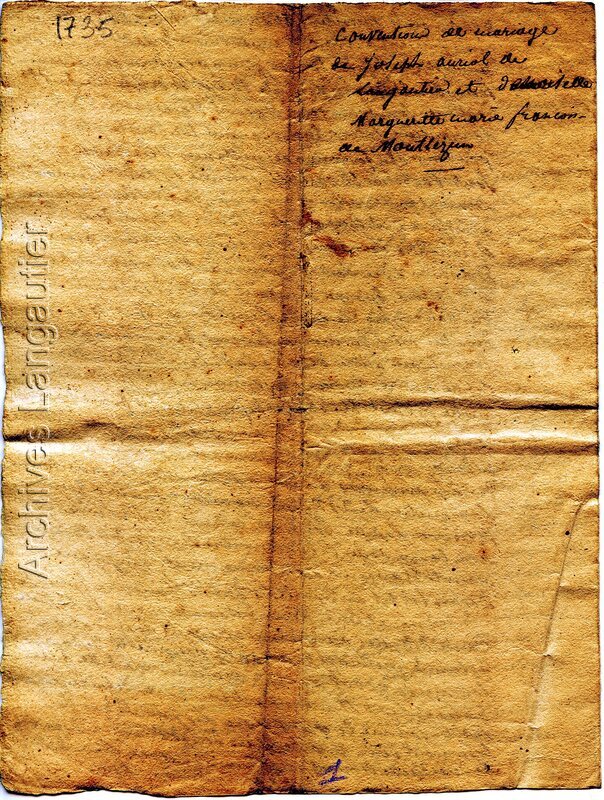 1735
Conventions de mariage
de Joseph auriol de
Langautier et demoiselle
Margueritte marie francon
de Montlezun
Archives Langautier
1